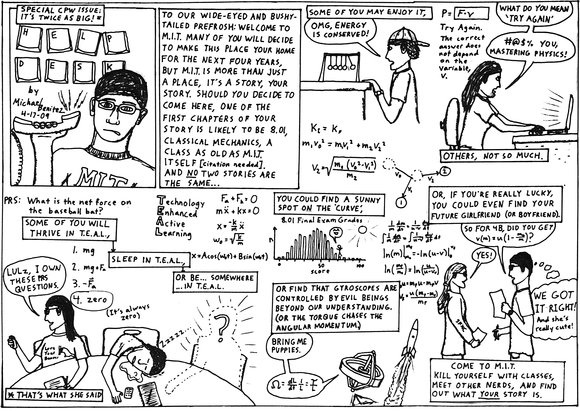 SPECIAL CPW ISSUE:
IT'S TWICE AS BIG!*
HELP
DESK
by
Michael
Benitez
4-17-09
M.I.T.
TO OUR WIDE-EYED AND BUSHY-
TAILED PREFROSH: WELCOME TO
M.I.T. MANY OF YOU WILL DECIDE
TO MAKE THIS PLACE YOUR HOME
FOR THE NEXT FOUR YEARS,
BUT M.I.T. IS MORE THAN JUST
A PLACE, IT'S A STORY, YOUR
STORY. SHOULD YOU DECIDE TO
COME HERE, ONE OF THE
FIRST CHAPTERS OF YOUR
STORY IS LIKELY TO BE 8.01,
CLASSICAL MECHANICS, A
CLASS AS OLD AS M.I.T.
ITSELF [citation needed],
AND NO TWO STORIES ARE
THE SAME...
SOME OF YOU MAY ENJOY IT,
OMG, ENERGY
IS CONSERVED!
P = F·v
Try Again.
The correct
answer does
not depend
on the
variable,
V.
WHAT DO YOU MEAN
'TRY AGAIN'
#@$% YOU,
MASTERING PHYSICS!
OTHERS, NOT SO MUCH.
PRS: What is the net force on
the baseball bat?
SOME OF YOU WILL
THRIVE IN T.E.A.L.,
1. mg
2. mg+Fa
3. -Fa
4. zero
(It's always
zero)
LULZ, I OWN
THESE PRS
QUESTIONS.
*THAT'S WHAT SHE SAID
Technology
Enhanced
Active
Learning
SLEEP IN T.E.A.L.,
x=Acos(ω0t)+Bsin(ω0t)
OR BE... SOMEWHERE
...IN T.E.A.L.
zzzzz
?
YOU COULD FIND A SUNNY
SPOT ON THE 'CURVE',
8.01 Final Exam Grades
score
OR FIND THAT GYROSCOPES ARE
CONTROLLED BY EVIL BEINGS
BEYOND OUR UNDERSTANDING.
(OR THE TORQUE CHASES THE
ANGULAR MOMENTUM.)
BRING ME
PUPPIES.
OR, IF YOU'RE REALLY LUCKY,
YOU COULD EVEN FIND YOUR
FUTURE GIRLFRIEND (OR BOYFRIEND).
SO FOR 4B, DID YOU GET
YES!
WE GOT
IT RIGHT!
And she's
really cute!
COME TO M.I.T.
KILL YOURSELF WITH CLASSES,
MEET OTHER NERDS, AND FIND
OUT WHAT YOUR STORY IS.